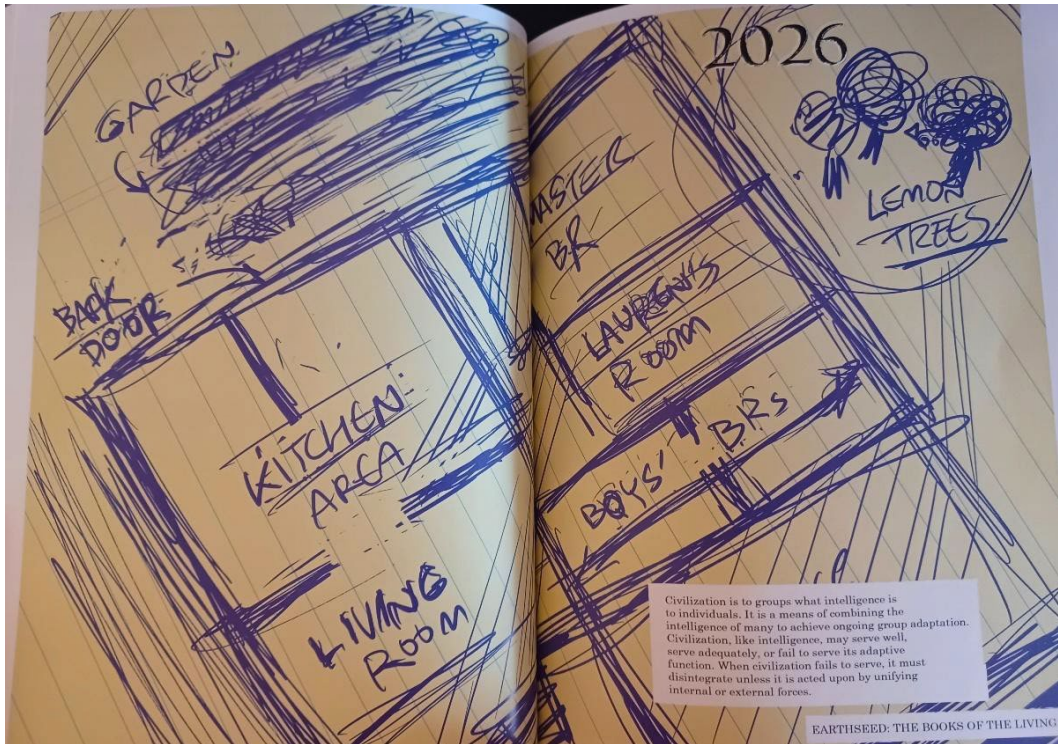 GARDEN
BACK
DOOR
KITCHEN
AREA
LIVING
ROOM
2026
MASTER
BR
LAUREN'S
ROOM
BOYS' BRs
LEMON
TREES
Civilization is to groups what intelligence is
to individuals. It is a means of combining the
intelligence of many to achieve ongoing group adaptation.
Civilization, like intelligence, may serve well,
serve adequately, or fail to serve its adaptive
function. When civilization fails to serve, it must
disintegrate unless it is acted upon by unifying
internal or external forces.
EARTHSEED: THE BOOKS OF THE LIVING